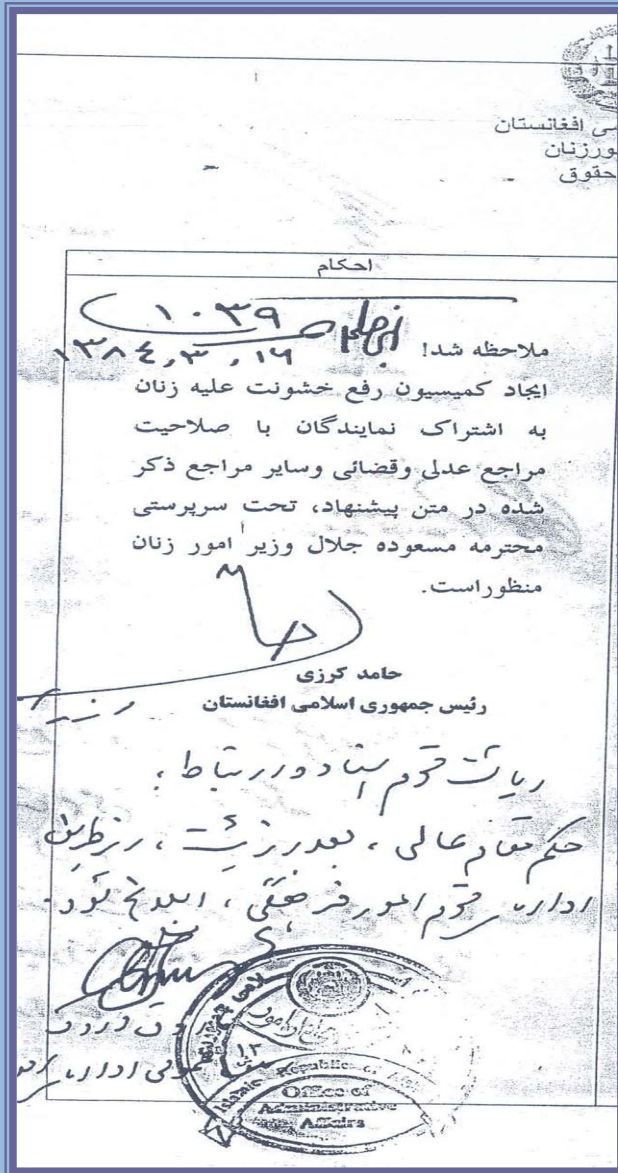 می افغانستان
ورزنان
حقوق
احکام
۱۰۳۹
ملاحظه شد!
۱۳۸۴،۳،۱۶
ایجاد کمیسیون رفع خشونت علیه زنان
به اشتراک نمایندگان با صلاحیت
مراجع عدلی وقضائی وسایر مراجع ذکر
شده در متن پیشنهاد، تحت سرپرستی
محترمه مسعوده جلال وزیر امور زنان
منظوراست.
حامد کرزی
رئیس جمهوری اسلامی افغانستان
ریاست محترم اسناد و ارتباط،
حکم مقام عالی، بعد از ثبت، از طریق
اداره محترم امور فرهنگی، ابلاغ شود.
Islamic Republic of
Office of
Administrative
Affairs